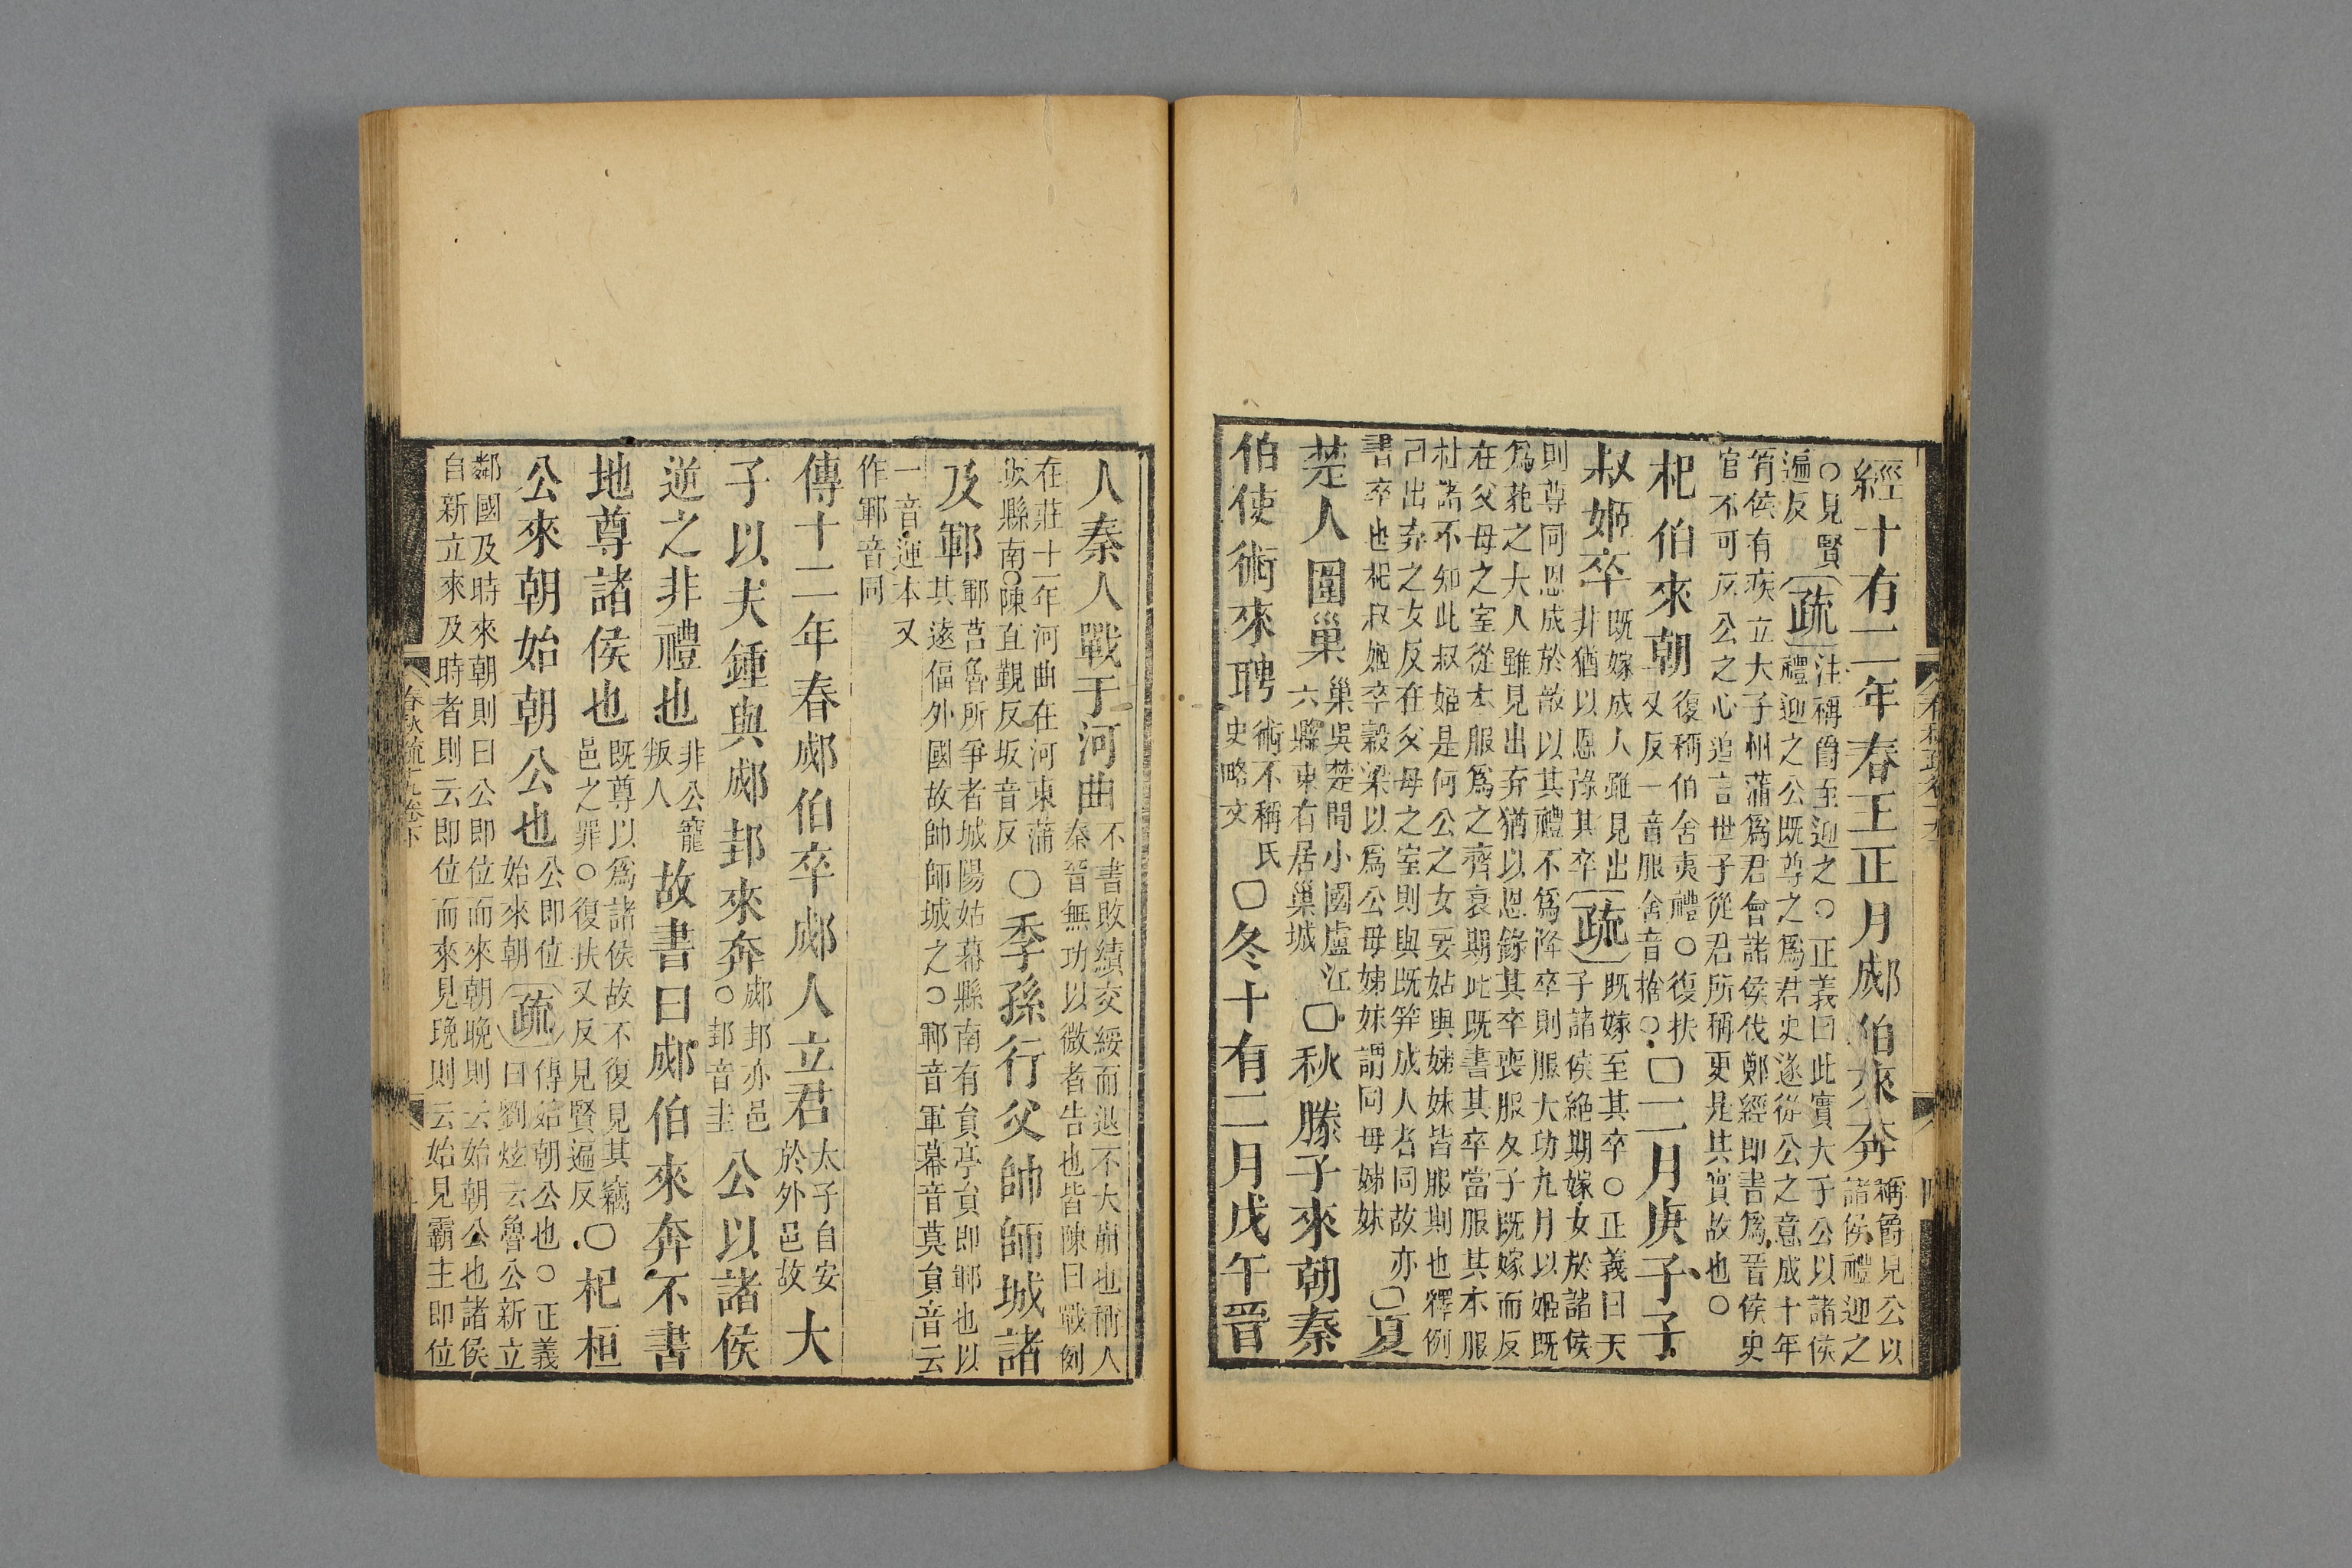 經十有二年春王正月郕伯來奔稱爵見公以諸侯禮迎之
○見賢遍反疏注稱爵至迎之○正義曰此實大子公以諸侯禮迎之公既尊之爲君史遂從公之意成十年
侯有疾立大子州蒲爲君會諸侯伐鄭經即書爲晉侯史官不可反公之心追言世子從君所稱更是其實故也○
杞伯來朝復稱伯舍夷禮○復扶又反一音服舍音捨○○二月庚子子
叔姬卒既嫁成人雖見出弃猶以恩錄其卒疏既嫁至其卒○正義曰天子諸侯絶期嫁女於諸侯
則尊同恩成於敵以其禮不爲降卒則服大功九月以姬既爲杞之夫人雖見出弃猶以恩錄其卒喪服女子既嫁而反
在父母之室從本服爲之齊衰期此既書其卒當服其本服杜諸不知此叔姬是何公之女要姑與姊妹皆服期也釋例
曰出弃之女反在父母之室則與既筓成人者同故亦書卒也杞叔姬卒穀梁以爲公母姊妹謂同母姊妹○夏
楚人圍巢巢吳楚間小國廬江六縣東有居巢城○秋滕子來朝秦
伯使術來聘術不稱氏史略文○冬十有二月戊午晉
人秦人戰于河曲不書敗績交綏而退不大崩也稱人秦晉無功以微者告也皆陳曰戰例
在莊十一年河曲在河東蒲坂縣南○陳直覲反坂音反○季孫行父帥師城諸
及鄆鄆莒魯所爭者城陽姑幕縣南有員亭員即鄆也以其遠偪外國故帥師城之○鄆音軍幕音莫員音云
一音運本又作鄆音同
傳十二年春郕伯卒郕人立君太子自安於外邑故大
子以夫鍾與郕邽來奔郕邽亦邑○邽音圭公以諸侯
逆之非禮也非公寵叛人故書曰郕伯來奔不書
地尊諸侯也既尊以爲諸侯故不復見其竊邑之罪○復扶又反見賢遍反○杞桓
公來朝始朝公也公即位始來朝疏傳始朝公也○正義曰劉炫云魯公新立
鄰國及時來朝則曰公即位而來朝晚則云始朝公也諸侯自新立來及時者則云即位而來見晚則云始見霸主即位
春秋疏九卷下